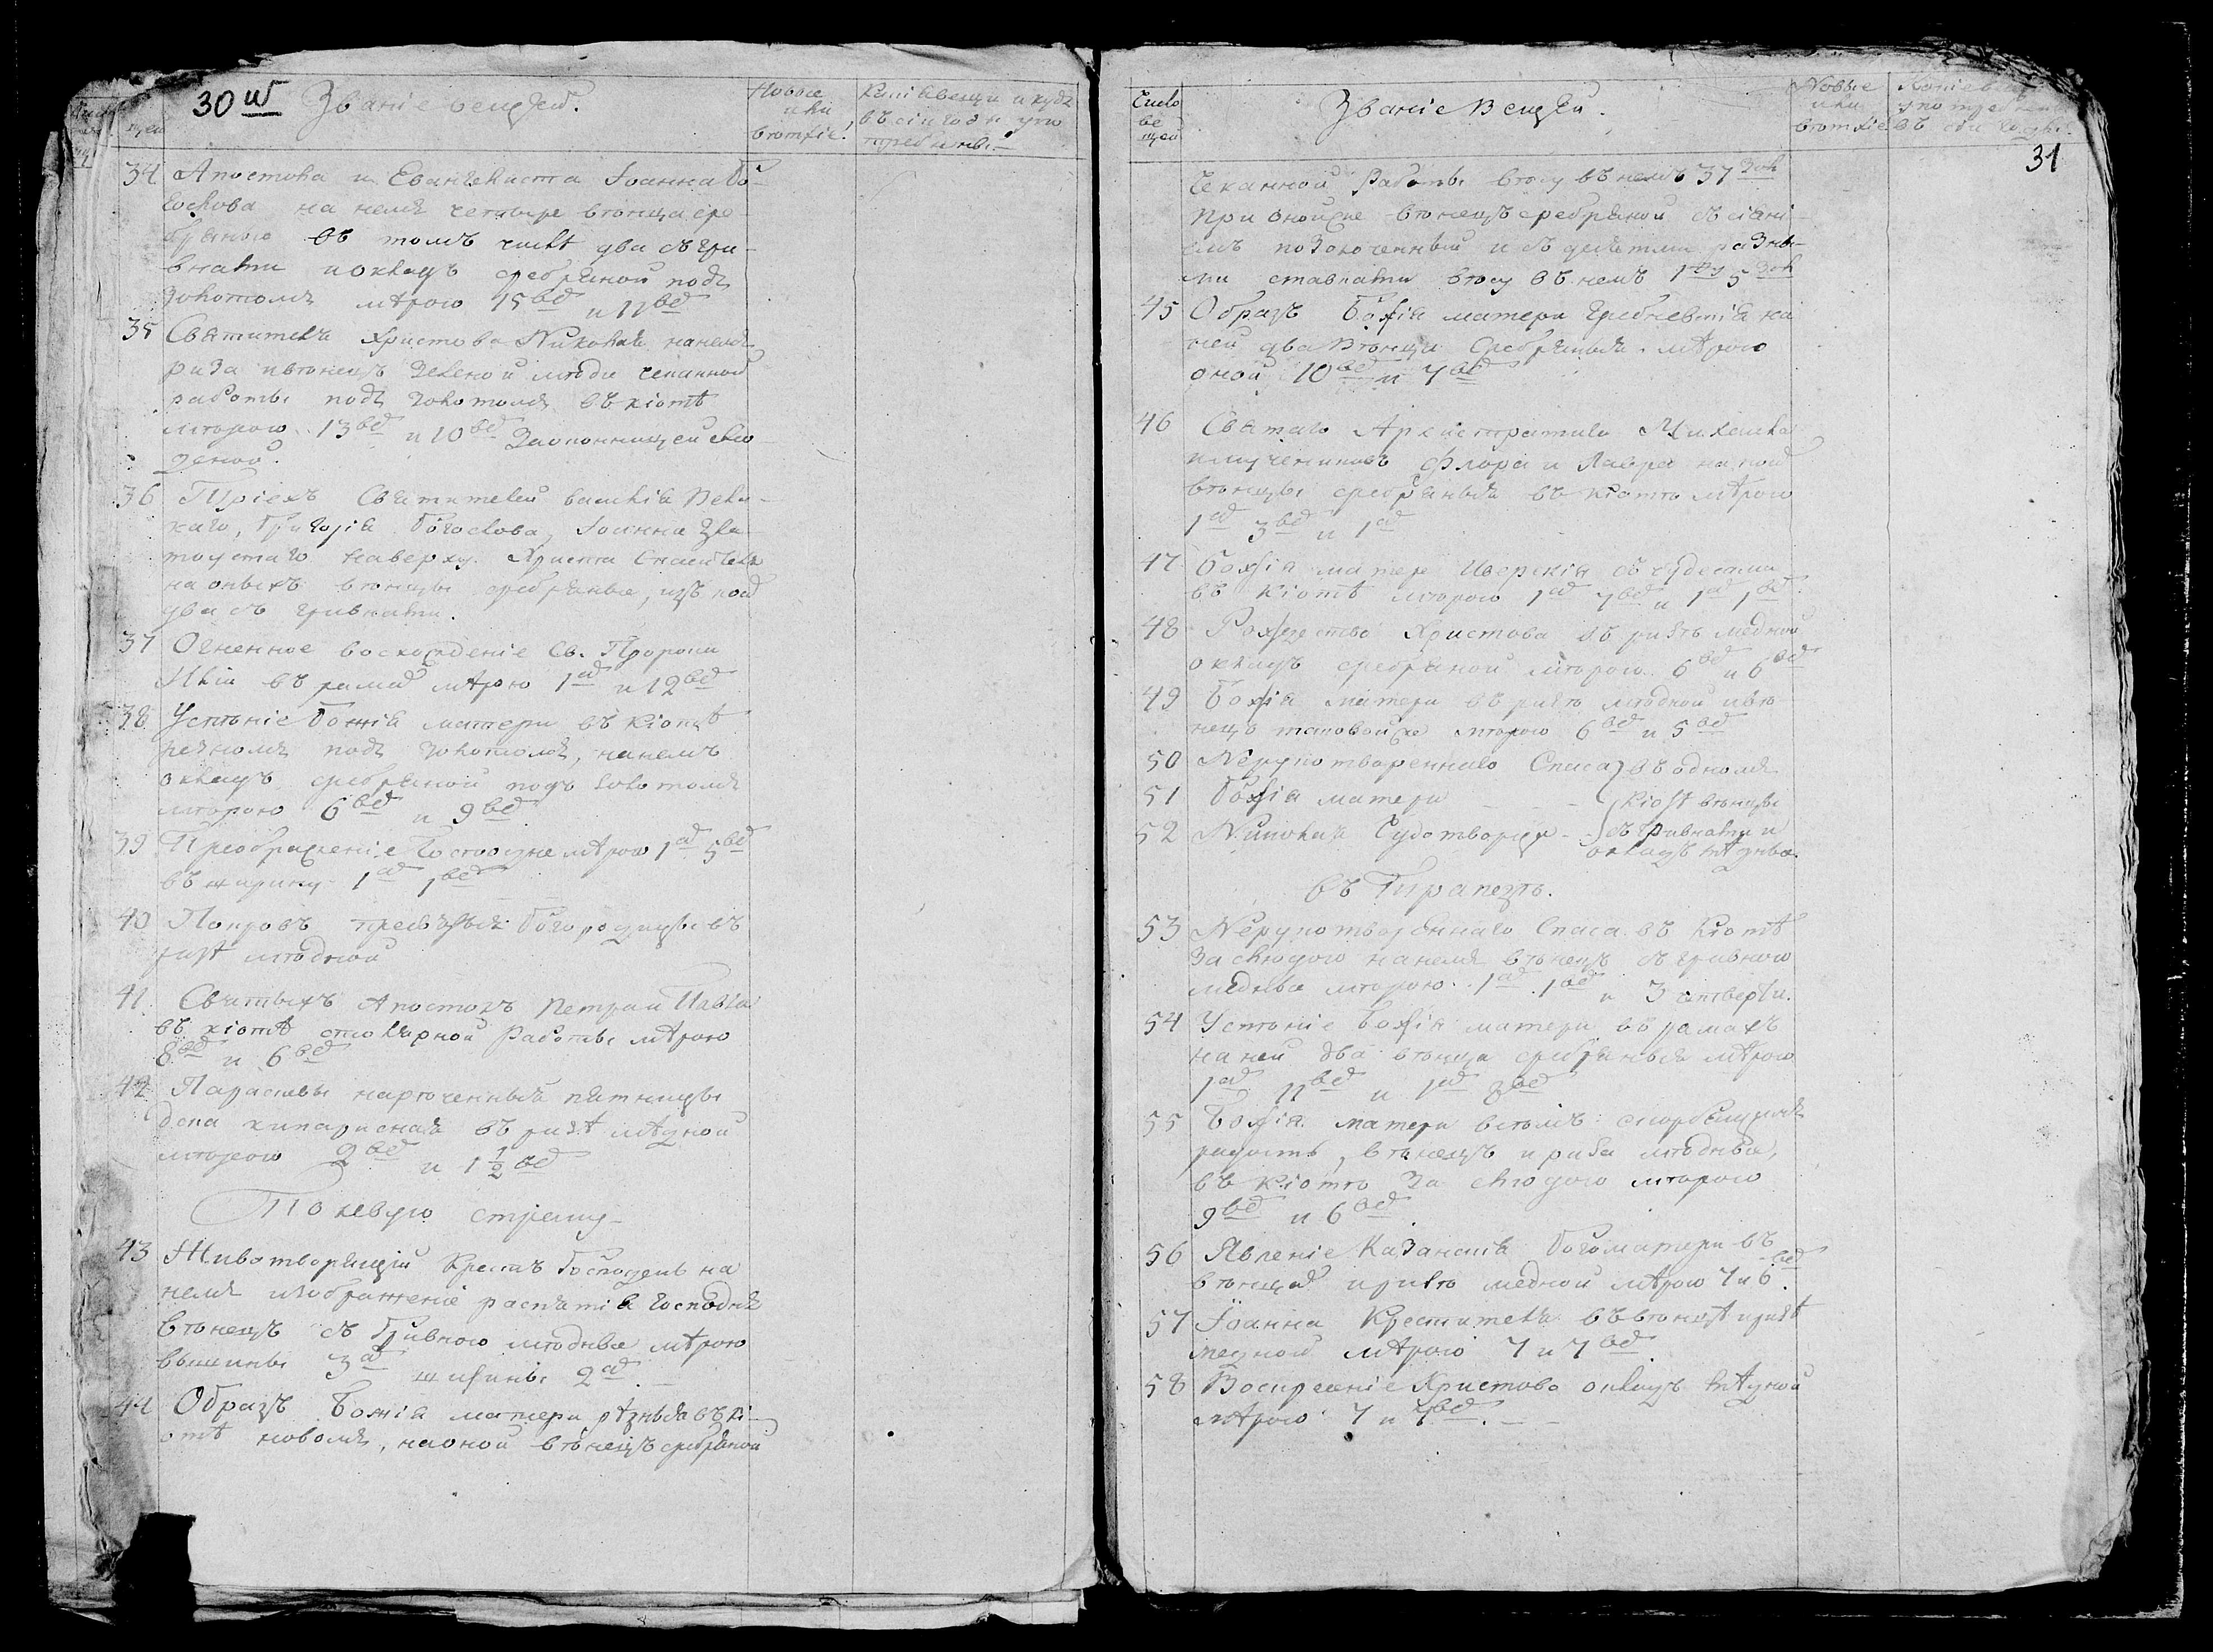 30 об
Званіе вещей.
Новые или ветхіе!
Какія вещи и куда въ сіи годы употреблены.
34 Апостола и Евангелиста Іоанна Бо-
гослова на немъ четыре венца сре-
бряного въ томъ числѣ два съ гри-
внами и окладъ сребряной подъ
золотомъ мѣрою 15 вер и 11 вер
35 Святителя Христова Николая на немъ
риза и венецъ зеленой меди чеканной
работы подъ золотомъ въ кіотѣ
мерою 13 вер и 10 вер
36 Тріехъ Святителей Василія Вели-
каго, Григорія Богослова, Іоанна Зла-
тоустаго наверху Христа Спасителя
на оныхъ венцы сребряные, изъ коих
два съ гривнами.
37 Огненное восхожденіе Св. Пророка
Иліи въ рамах мѣрою 1 ар и 12 вер
38 Успеніе Божія матери въ кіотѣ
резномъ подъ золотомъ, на немъ
окладъ сребряной подъ золотомъ
мерою 6 вер и 9 вер
39 Преображеніе Господне мѣрою 1 ар 5 вер
въ ширину 1 ар 1 вер
40 Покровъ Богородицы въ
ризѣ медной
41 Святыхъ Апостолъ Петра и Павла
въ кіотѣ столярной работы мѣрою
8 вер и 6 вер
42 Параскевы нареченныя пятницы
дска кипарисная въ ризѣ мѣдной
мерою 2 вер и 1 1/2 вер
По левую страну
43 Животворящій Крестъ Господень на
немъ изображеніе распятія Господня
венецъ съ гривною медные мѣрою
вышины 3 ар ширины 2 ар.
44 Образъ Божія матери рѣзныя въ кі-
отѣ новомъ, на оной венецъ сребряной
31
Число вещей
Званіе Вещей.
Новые или ветхіе
чеканной работы весу въ немъ 37 зол
при оной же венецъ сребряной съ сіяні-
емъ позолоченный и съ десятми разны-
ми ставками весу въ немъ 1 фу 5 зол
45 Образъ Божія матери Гребневскія на
ней два венца сребряныя мѣрою
оной 10 вер и 7 вер
46 Святаго Архистратига Михаила
и мучениковъ Флора и Лавра на
венцы сребряныя въ кіоте мѣрою
1 ар 3 вер и 1 ар
47 Божія матери Иверскія съ чудесами
въ кіотѣ мерою 1 ар 7 вер и 1 ар 1 вер
48 Рождество Христова въ ризѣ медной
окладъ сребряной мерою 6 вер и 6 вер
49 Божія матери въ ризе медной и ве-
нецъ таковой же мерою 6 вер и 5 вер
50 Нерукотвореннаго Спаса } въ одномъ
51 Божія матери - - - } кіоте венцы
52 Николая Чудотворца - } съ гривнами и
окладъ мѣдные.
въ Трапезе.
53 Нерукотвореннаго Спаса въ кіотѣ
за слюдою на немъ венецъ съ гривною
медные мерою 1 ар 1 вер и 3 четверти.
54 Успеніе Божія матери въ рамахъ
на ней два венца сребряныя мѣрою
1 ар 11 вер и 1 ар 8 вер
55 Божія матери всемъ скорбящимъ
радость, венецъ и риза медные,
въ кіоте за слюдою мерою
9 вер и 6 вер.
56 Явленіе Казанскія Богоматери въ
венцах и ризе медной мѣрою 7 и 6 вер.
57 Іоанна Крестителя въ венцѣ и ризѣ
медной мѣрою 7 и 7 вер.
58 Воскресеніе Христово окладъ мѣдной
мѣрою 7 и 7 вер.